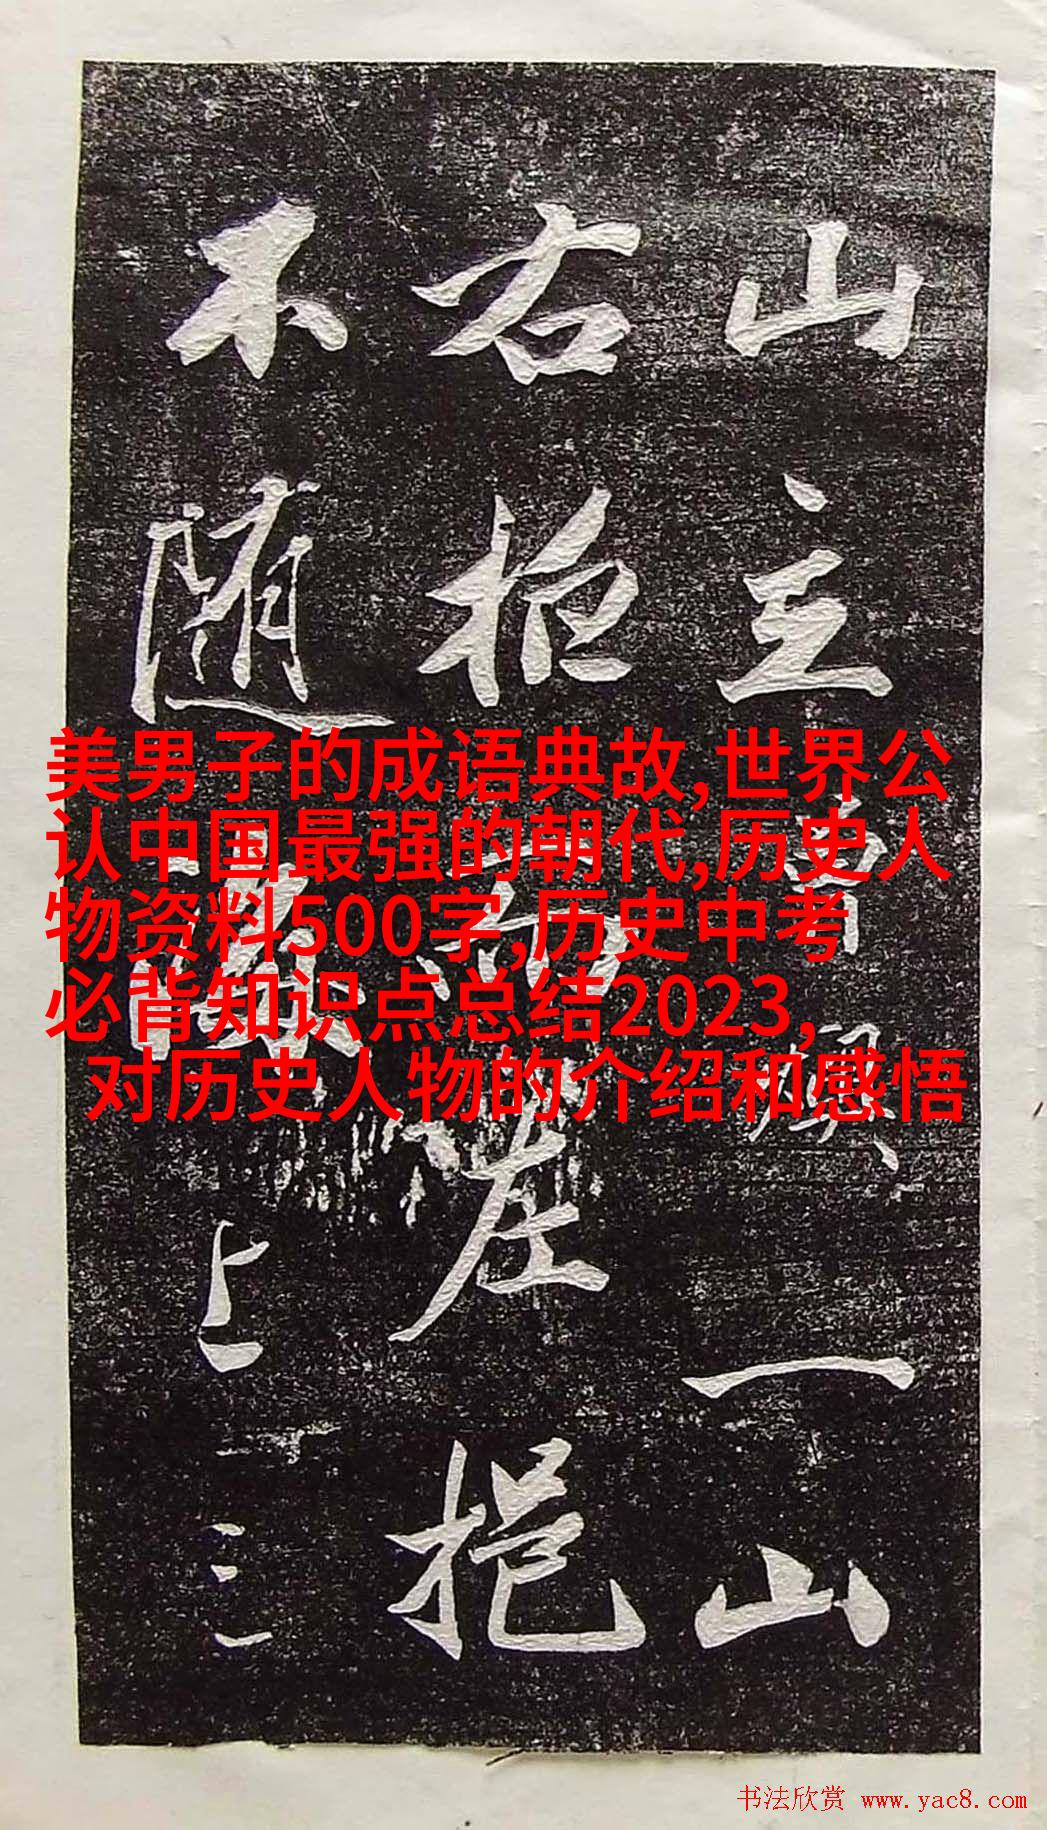 山主曾額、一山
右極而左挹
不随
上三
美男子的成语典故,世界公
认中国最强的朝代,历史人
物资料500字,历史中考
必背知识点总结2023,
对历史人物的介绍和感悟
书法欣赏 www.yac8.com